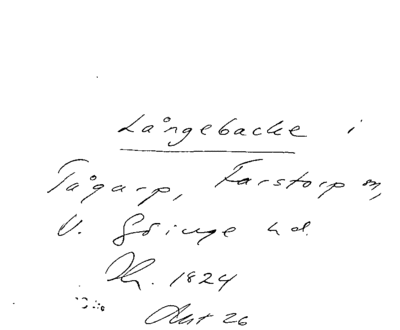 Långebacke i
Tågarp, Farstorp sn,
V. Göinge hd.
1824
Akt 26